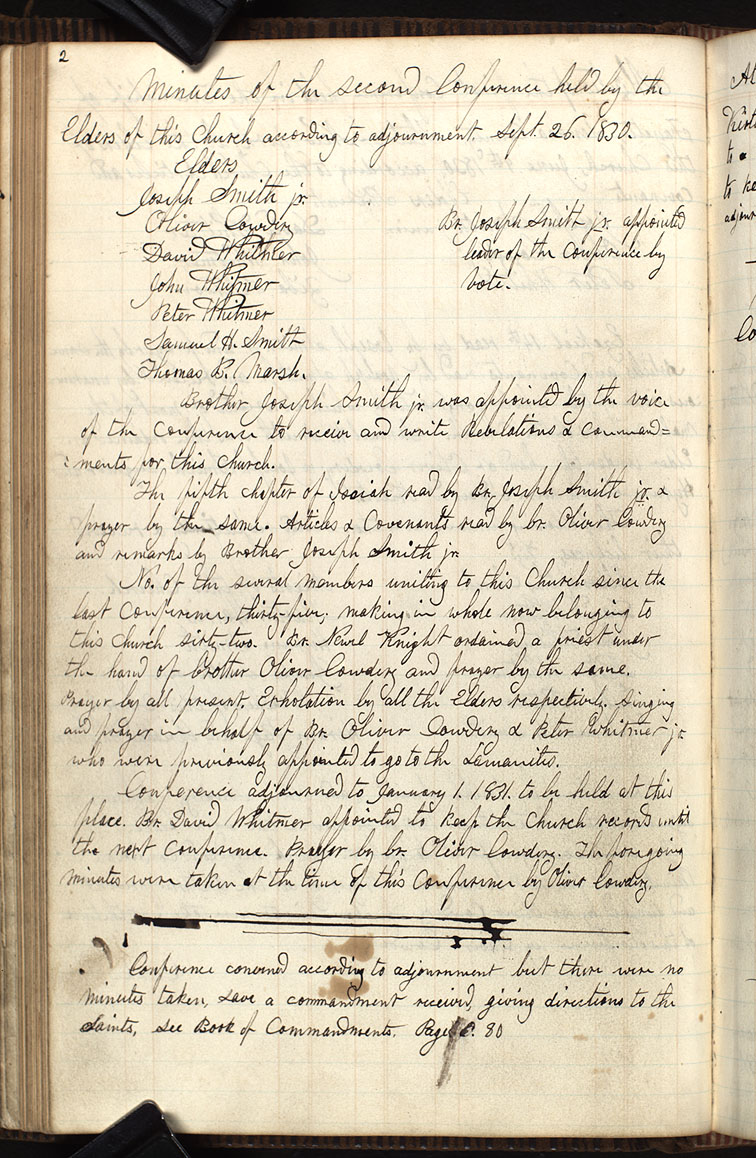 2
Minutes of the second Conference held by the
Elders of this Church according to adjournment. Sept. 26. 1830.
Elders
Joseph Smith jr.
Oliver Cowdery
David Whitmer
John Whitmer
Peter Whitmer
Samuel H. Smith
Thomas B. Marsh.
Br. Joseph Smith jr. appointed
leader of the Conference by
vote.
Brother Joseph Smith jr. was appointed by the voice
of the Conference to receive and write Revelations & Command=
=ments for this Church.
The fifth chapter of Isaiah read by Br. Joseph Smith jr. &
prayer by the same. Articles & Covenants read by br. Oliver Cowdery
and remarks by Brother Joseph Smith jr.
No. of the several members uniting to this Church since the
last Conference, thirty-five, making in whole now belonging to
this Church sixty-two. Br. Newel Knight ordained a priest under
the hand of brother Oliver Cowdery and prayer by the same.
Prayer by all present. Exhortation by all the Elders respectively. Singing
and prayer in behalf of Br. Oliver Cowdery & Peter Whitmer jr.
who were previously appointed to go to the Lamanites.
Conference adjourned to January 1. 1831. to be held at this
place. Br. David Whitmer appointed to keep the Church records until
the next Conference. Prayer by br. Oliver Cowdery. The foregoing
minutes were taken at the time of this Conference by Oliver Cowdery.
Conference convened according to adjournment but there were no
minutes taken, save a commandment received, giving directions to the
Saints, see Book of Commandments. Page 80
At
Kirt
to a
to ke
adjour
Co